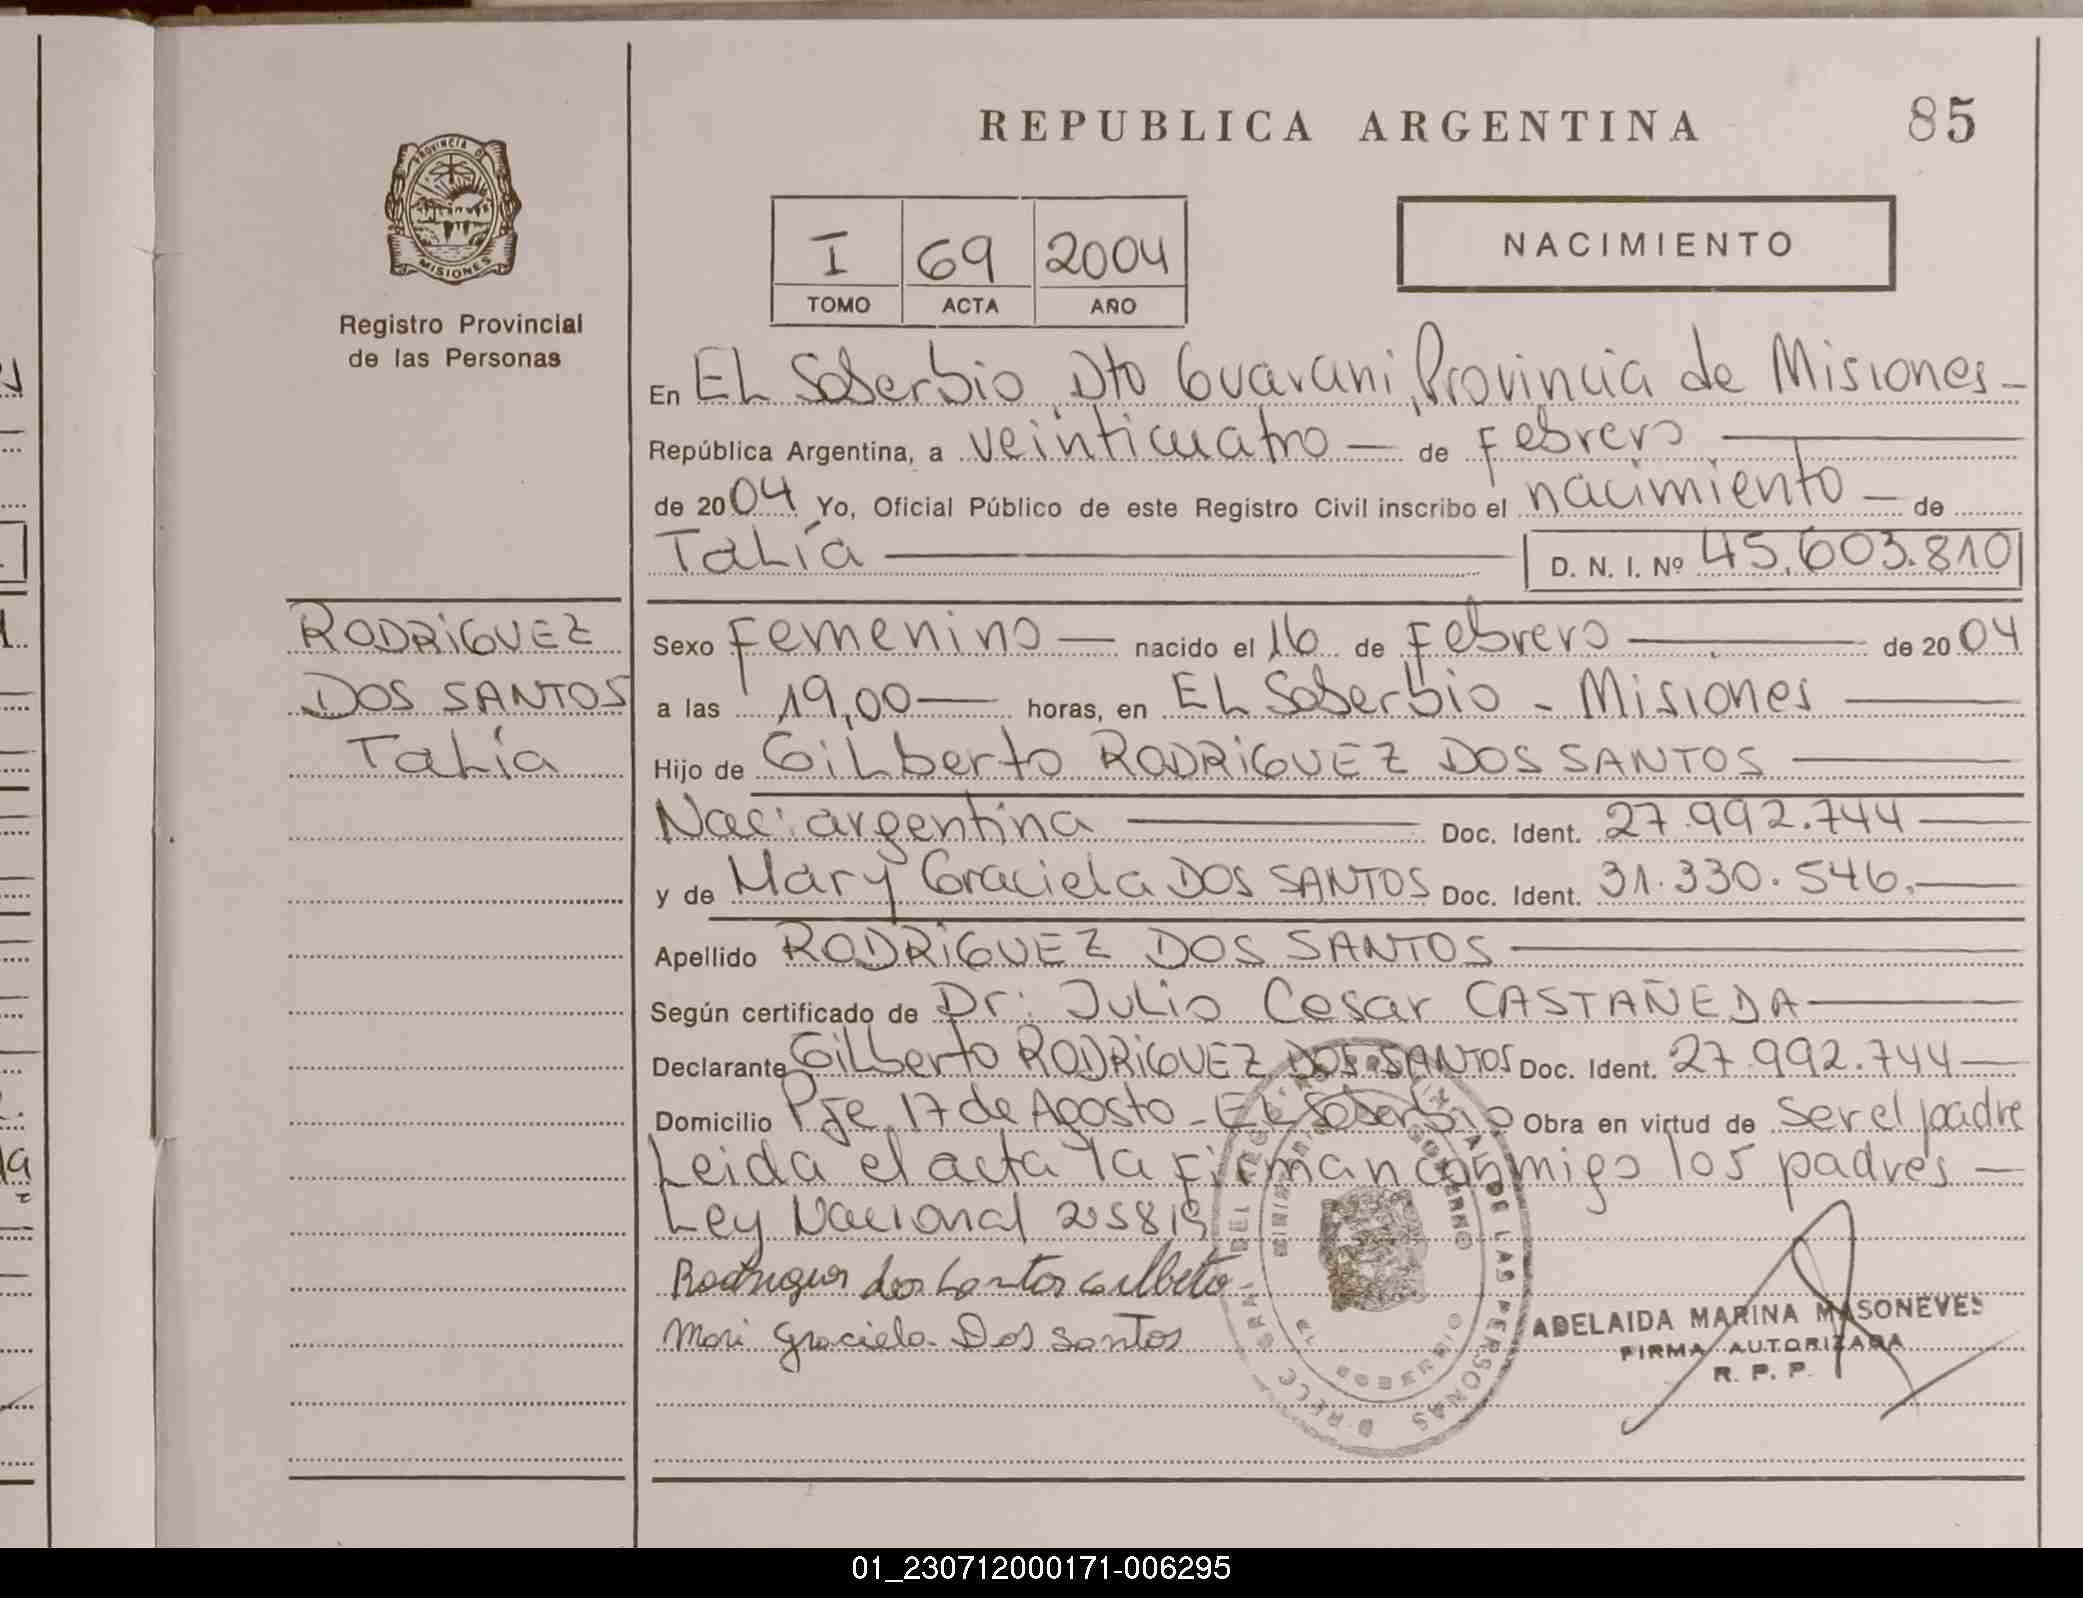 REPUBLICA ARGENTINA
85
PROVINCIA DE
MISIONES
Registro Provincial
de las Personas
I 69 2004
TOMO ACTA AÑO
NACIMIENTO
En EL Soberbio, Dto Guarani, Provincia de Misiones
República Argentina, a veinticuatro de Febrero
de 2004 Yo, Oficial Público de este Registro Civil inscribo el nacimiento de
Talía D. N. I. Nº 45.603.810
RODRiGUEZ
DOS SANTOS
Talía
Sexo Femenino nacido el 16 de Febrero de 2004
a las 19,00 horas, en EL Soberbio - Misiones
Hijo de Gilberto RODRiGUEZ DOS SANTOS
Nac: argentina Doc. Ident. 27.992.744
y de Mary Graciela DOS SANTOS Doc. Ident. 31.330.546.
Apellido RODRiGUEZ DOS SANTOS
Según certificado de Dr: Julio Cesar CASTAÑEDA
Declarante Gilberto RODRiGUEZ DOS SANTOS Doc. Ident. 27.992.744
Domicilio Pje 17 de Agosto - EL Soberbio Obra en virtud de ser el padre
Leida el acta la firman conmigo los padres
Ley Nacional 25819
Rodriguez dos Santos Gilberto
Mari Graciela Dos Santos
ADELAIDA MARINA MASONEVES
FIRMA AUTORIZADA
R. P. P.
DE LAS PERSONAS
01_230712000171-006295